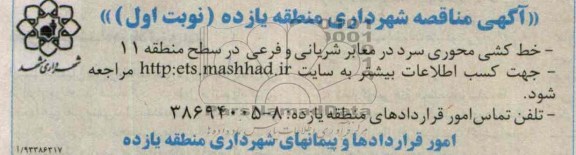 «آگهی مناقصه شهرداری منطقه یازده (نوبت اول)»
- خط کشی محوری سرد در معابر شریانی و فرعی در سطح منطقه ۱۱
- جهت کسب اطلاعات بیشتر به سایت http:ets.mashhad.ir مراجعه
شود.
- تلفن تماس امور قراردادهای منطقه یازده: ۸-۳۸۶۹۴۰۰۵
امور قراردادها و پیمانهای شهرداری منطقه یازده
شهرداری مشهد
۱/۹۳۳۸۶۳۱۷
ParsNamadData